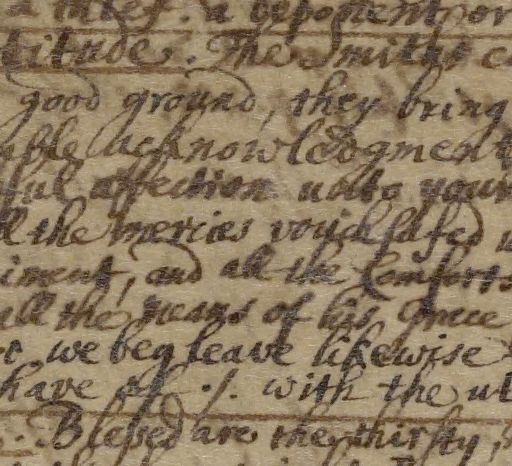 a deponent or
titude. The Smiths
good ground, they bring
able acknowledgment
ful affection unto your
ll the mercies vouchsafed
iment, and all the Comforts
all the means of his Grace
we beg leave likewise
have of ./. with the ut
Blessed are the thirsty,